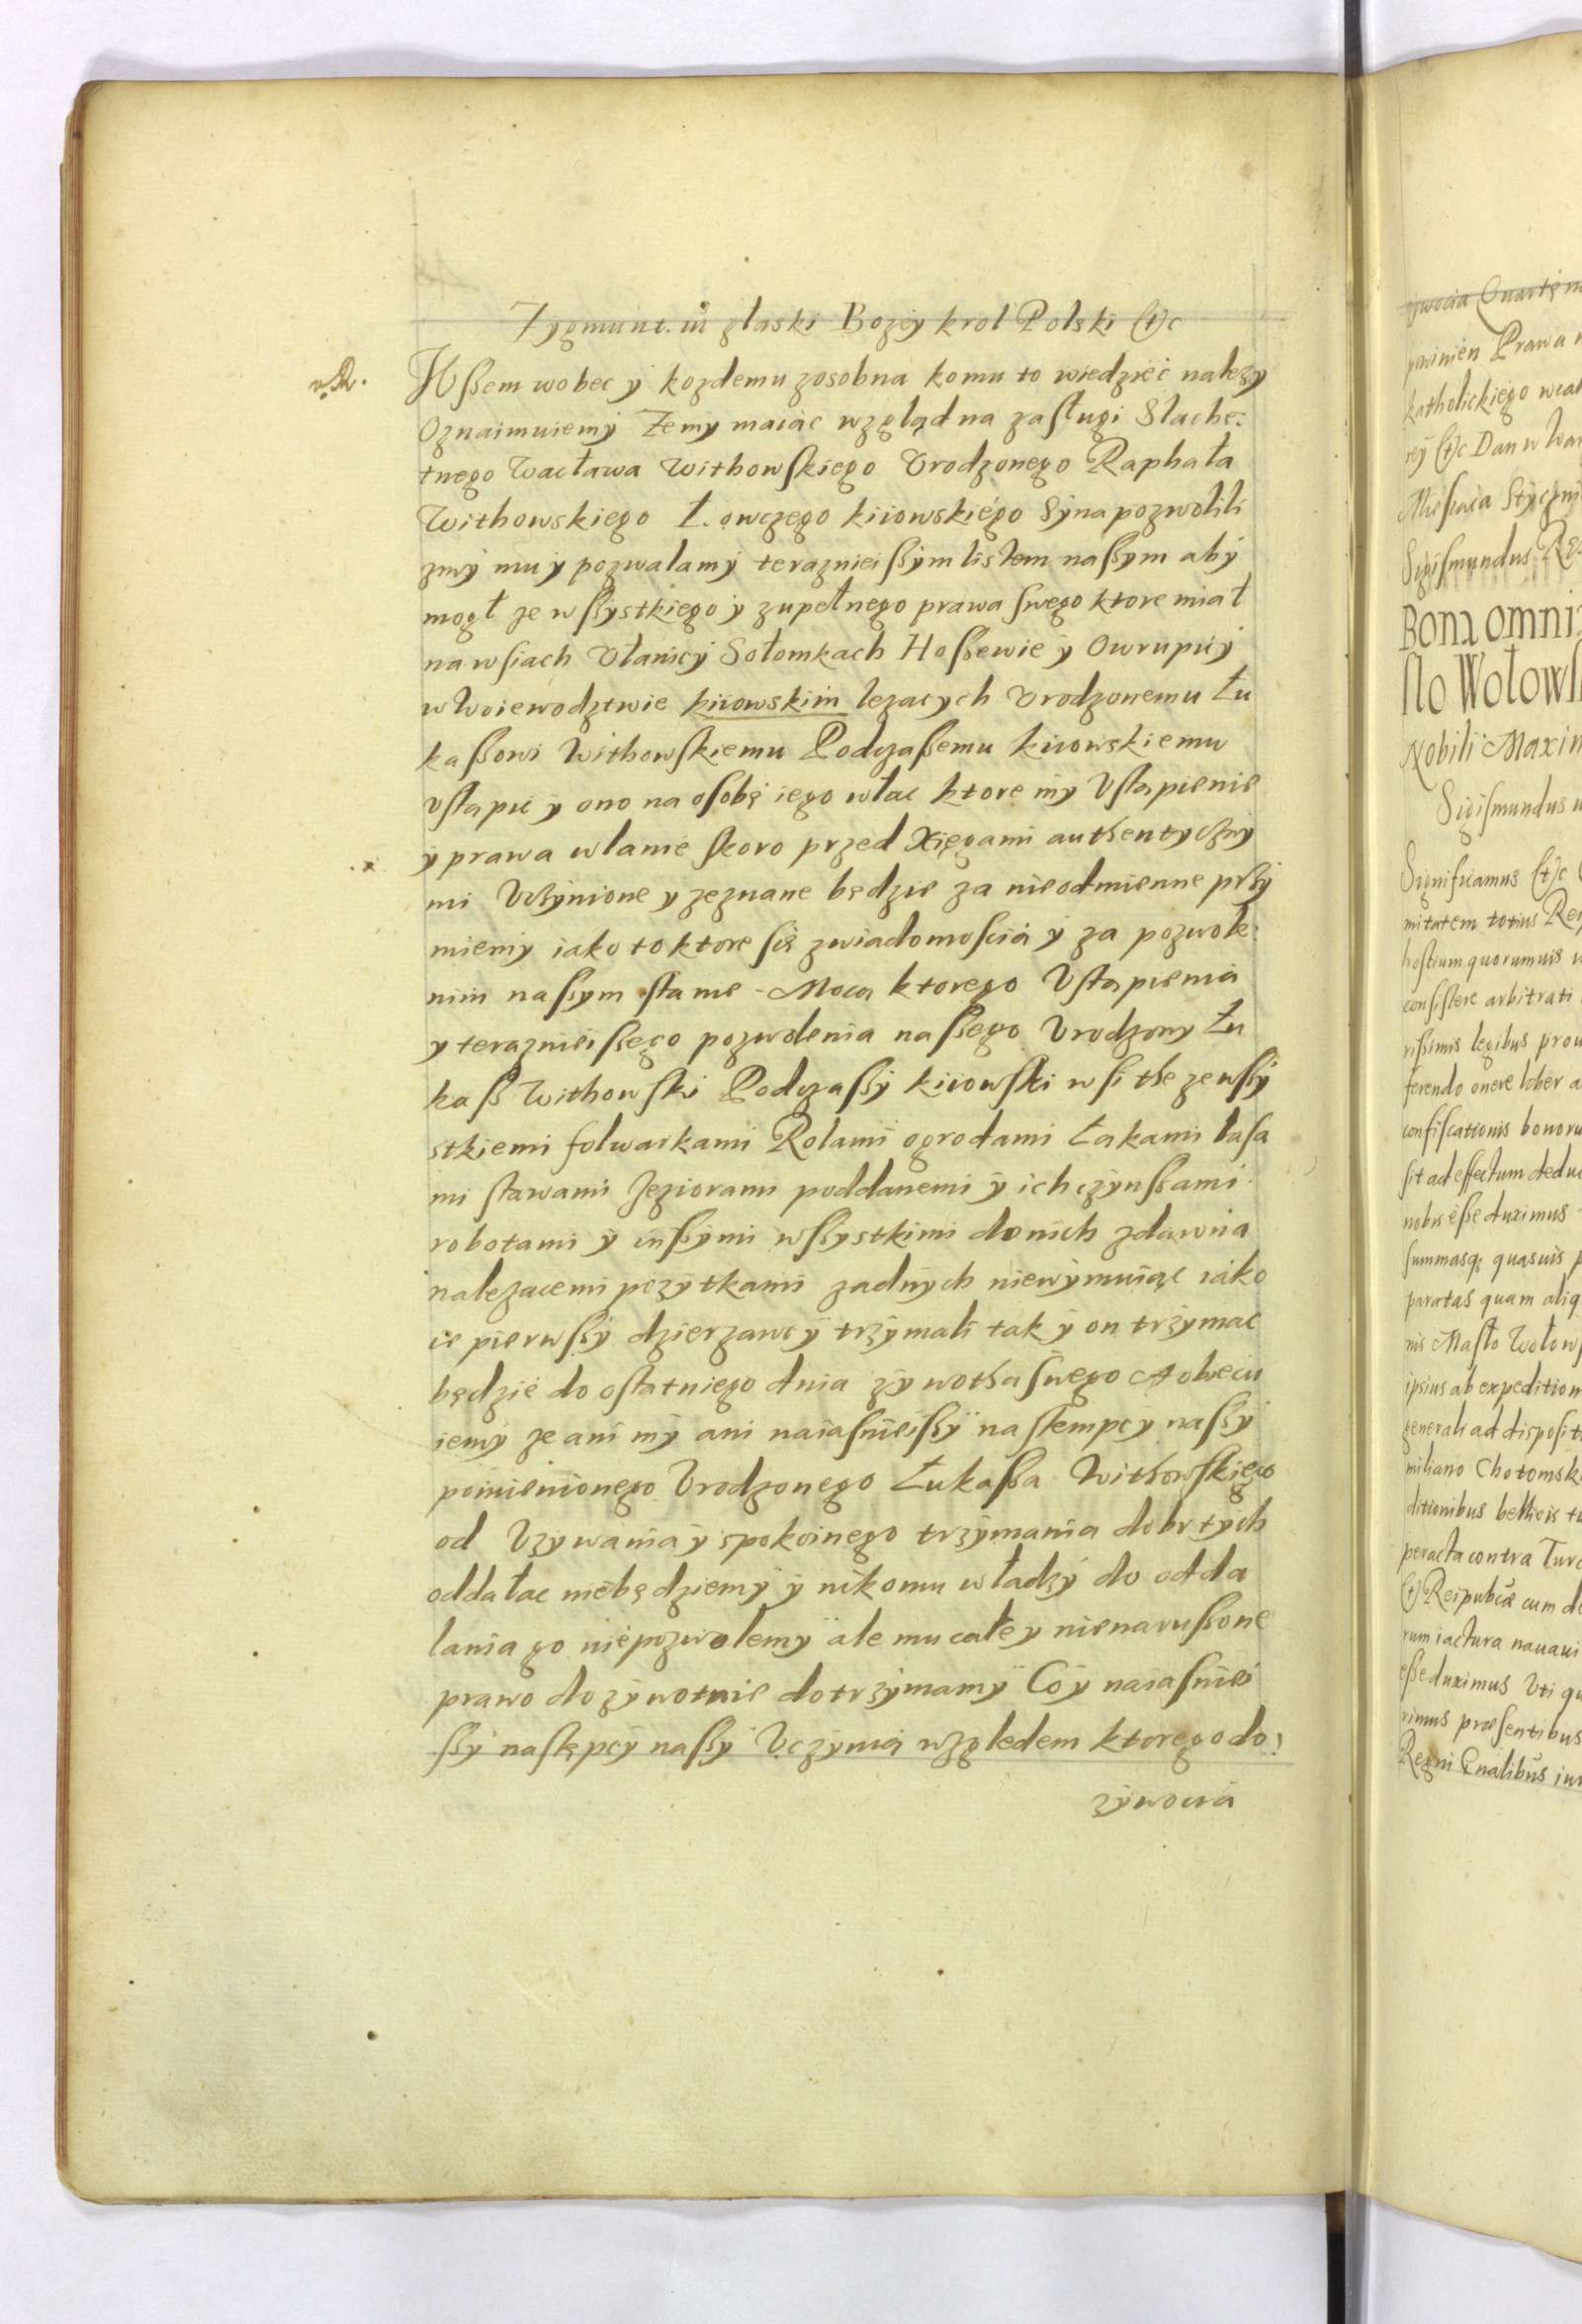 Zygmunt. III z laski Bozey krol Polski (t)c
Wssem wobec y kozdemu zosobna komu to wiedzieć nalezy
Oznaimuiemy Ze my maiąc wzgląd na zasługi Slache:
tnego Wacława Withowskiego Vrodzonego Raphała
Withowskiego Łowczego kiiowskiego Syna pozwolili
zmy mu y pozwalamy terazniejssym listem nassym aby
mogł ze wssystkiego y zupełnego prawa swego ktore miał
na wsiach Vłanicy Sołomkach Hossewie y Owrupiiy
w Woiewodztwie kiiowskim lezacych Vrodzonemu Łu
kassowi Withowskiemu Podczassemu kiiowskiemu
vstapić y ono na osobę iego wlac ktore my Vstapienie
y prawa wlanie skoro przed Xięgami authentyczny
mi Vczynione y zeznane będzie za nieodmienne przy
miemy iako to ktore się zwiadomoscią y za pozwole:
nim nassym stanie - Mocą ktorego Vstapienia
y teraznieissego pozwolenia nassego Vrodzony Łu
kass Withowski Podczassy kiiowski wsi the ze wssy
stkiemi folwarkami Rolami ogrodami Łąkami lasa
mi stawami Jeziorami poddanemi y ich czynssami
robotami y inssymi wssystkimi do nich zdawna
nalezacemi pozytkami zadnych niewymuiąc iako
ie pierwssy dzierzawcy trzymali tak y on trzymac
będzie do ostatniego dnia zywotha swego A obiecu
iemy ze ani my ani naiasnieissy nastempcy nassy
pomienionego Vrodzonego Łukassa Withowskiego
od Vzywania y spokoinego trzymania dobr tych
oddalac niebędziemy y nikomu władzy do odda
lania go niepozwolemy ale mu całe y nienarussone
prawo dozywotnie dotrzymamy Co y naiasniei
ssy następcy nassy Vczynią względem ktorego do:
zywocia
zywocia Quartę
powinien Prawa
katholickiego wcal
rey (t)c Dan w War
Miesiaca Styczni
Sigismundus
Bona omni
sto Wołows
Nobili Maxim
Sigismundus
Significamus (t)c
mitatem totius Rei
hostium quorumuis
consistere arbitrati
rissimis legibus prou
ferendo onere liber a
confiscationis bonoru
sit ad effectum deduc
nobis esse duximus
summasq; quasuis p
paratas quam aliq
nis Masło Wołows
ipsius ab expedition
generali ad disposit
miliano Chotomsk
ditionibus bellicis tu
peracta contra Turc
(t) Reipublicæ cum de
rum iactura nauaui
esse duximus Vti qu
rimus præsentibus
Regni Gnalibus iur